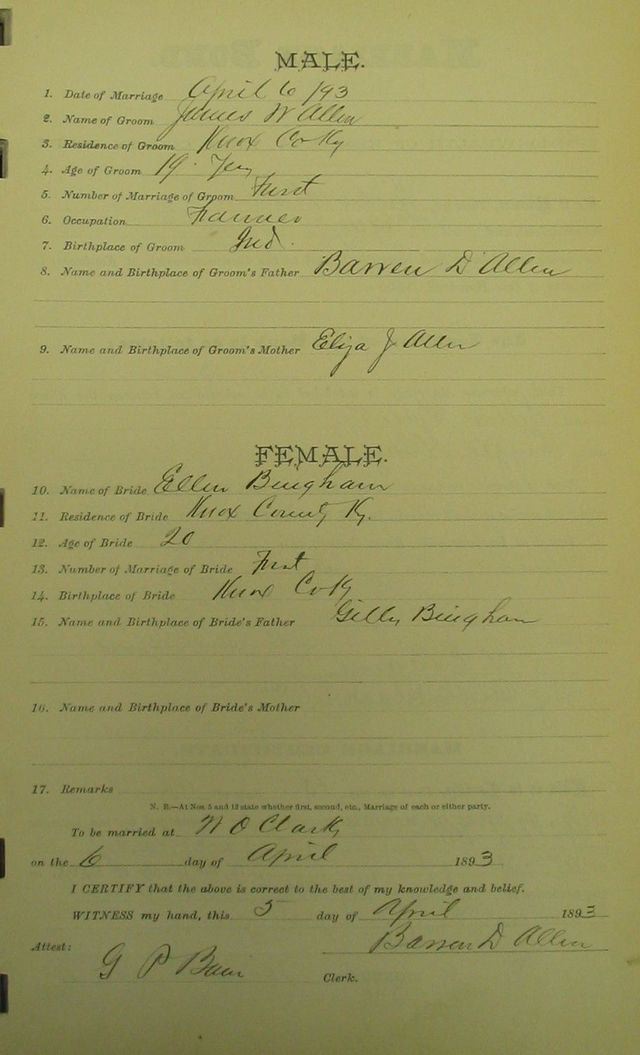 MALE.
1. Date of Marriage April 6 / 93
2. Name of Groom James W Allen
3. Residence of Groom Knox Co Ky
4. Age of Groom 19
5. Number of Marriage of Groom First
6. Occupation Farmer
7. Birthplace of Groom Ind.
8. Name and Birthplace of Groom's Father Barren D Allen
9. Name and Birthplace of Groom's Mother Eliza J Allen
FEMALE.
10. Name of Bride Ellen Bingham
11. Residence of Bride Knox County Ky.
12. Age of Bride 20
13. Number of Marriage of Bride First
14. Birthplace of Bride Knox Co Ky
15. Name and Birthplace of Bride's Father Bingham
16. Name and Birthplace of Bride's Mother
17. Remarks
N. B.—At Nos. 5 and 13 state whether first, second, etc., Marriage of each or either party.
To be married at W O Clark
on the 6 day of April 1893
I CERTIFY that the above is correct to the best of my knowledge and belief.
WITNESS my hand, this 5 day of April 1893
Barren D Allen
Attest:
G P Bain Clerk.